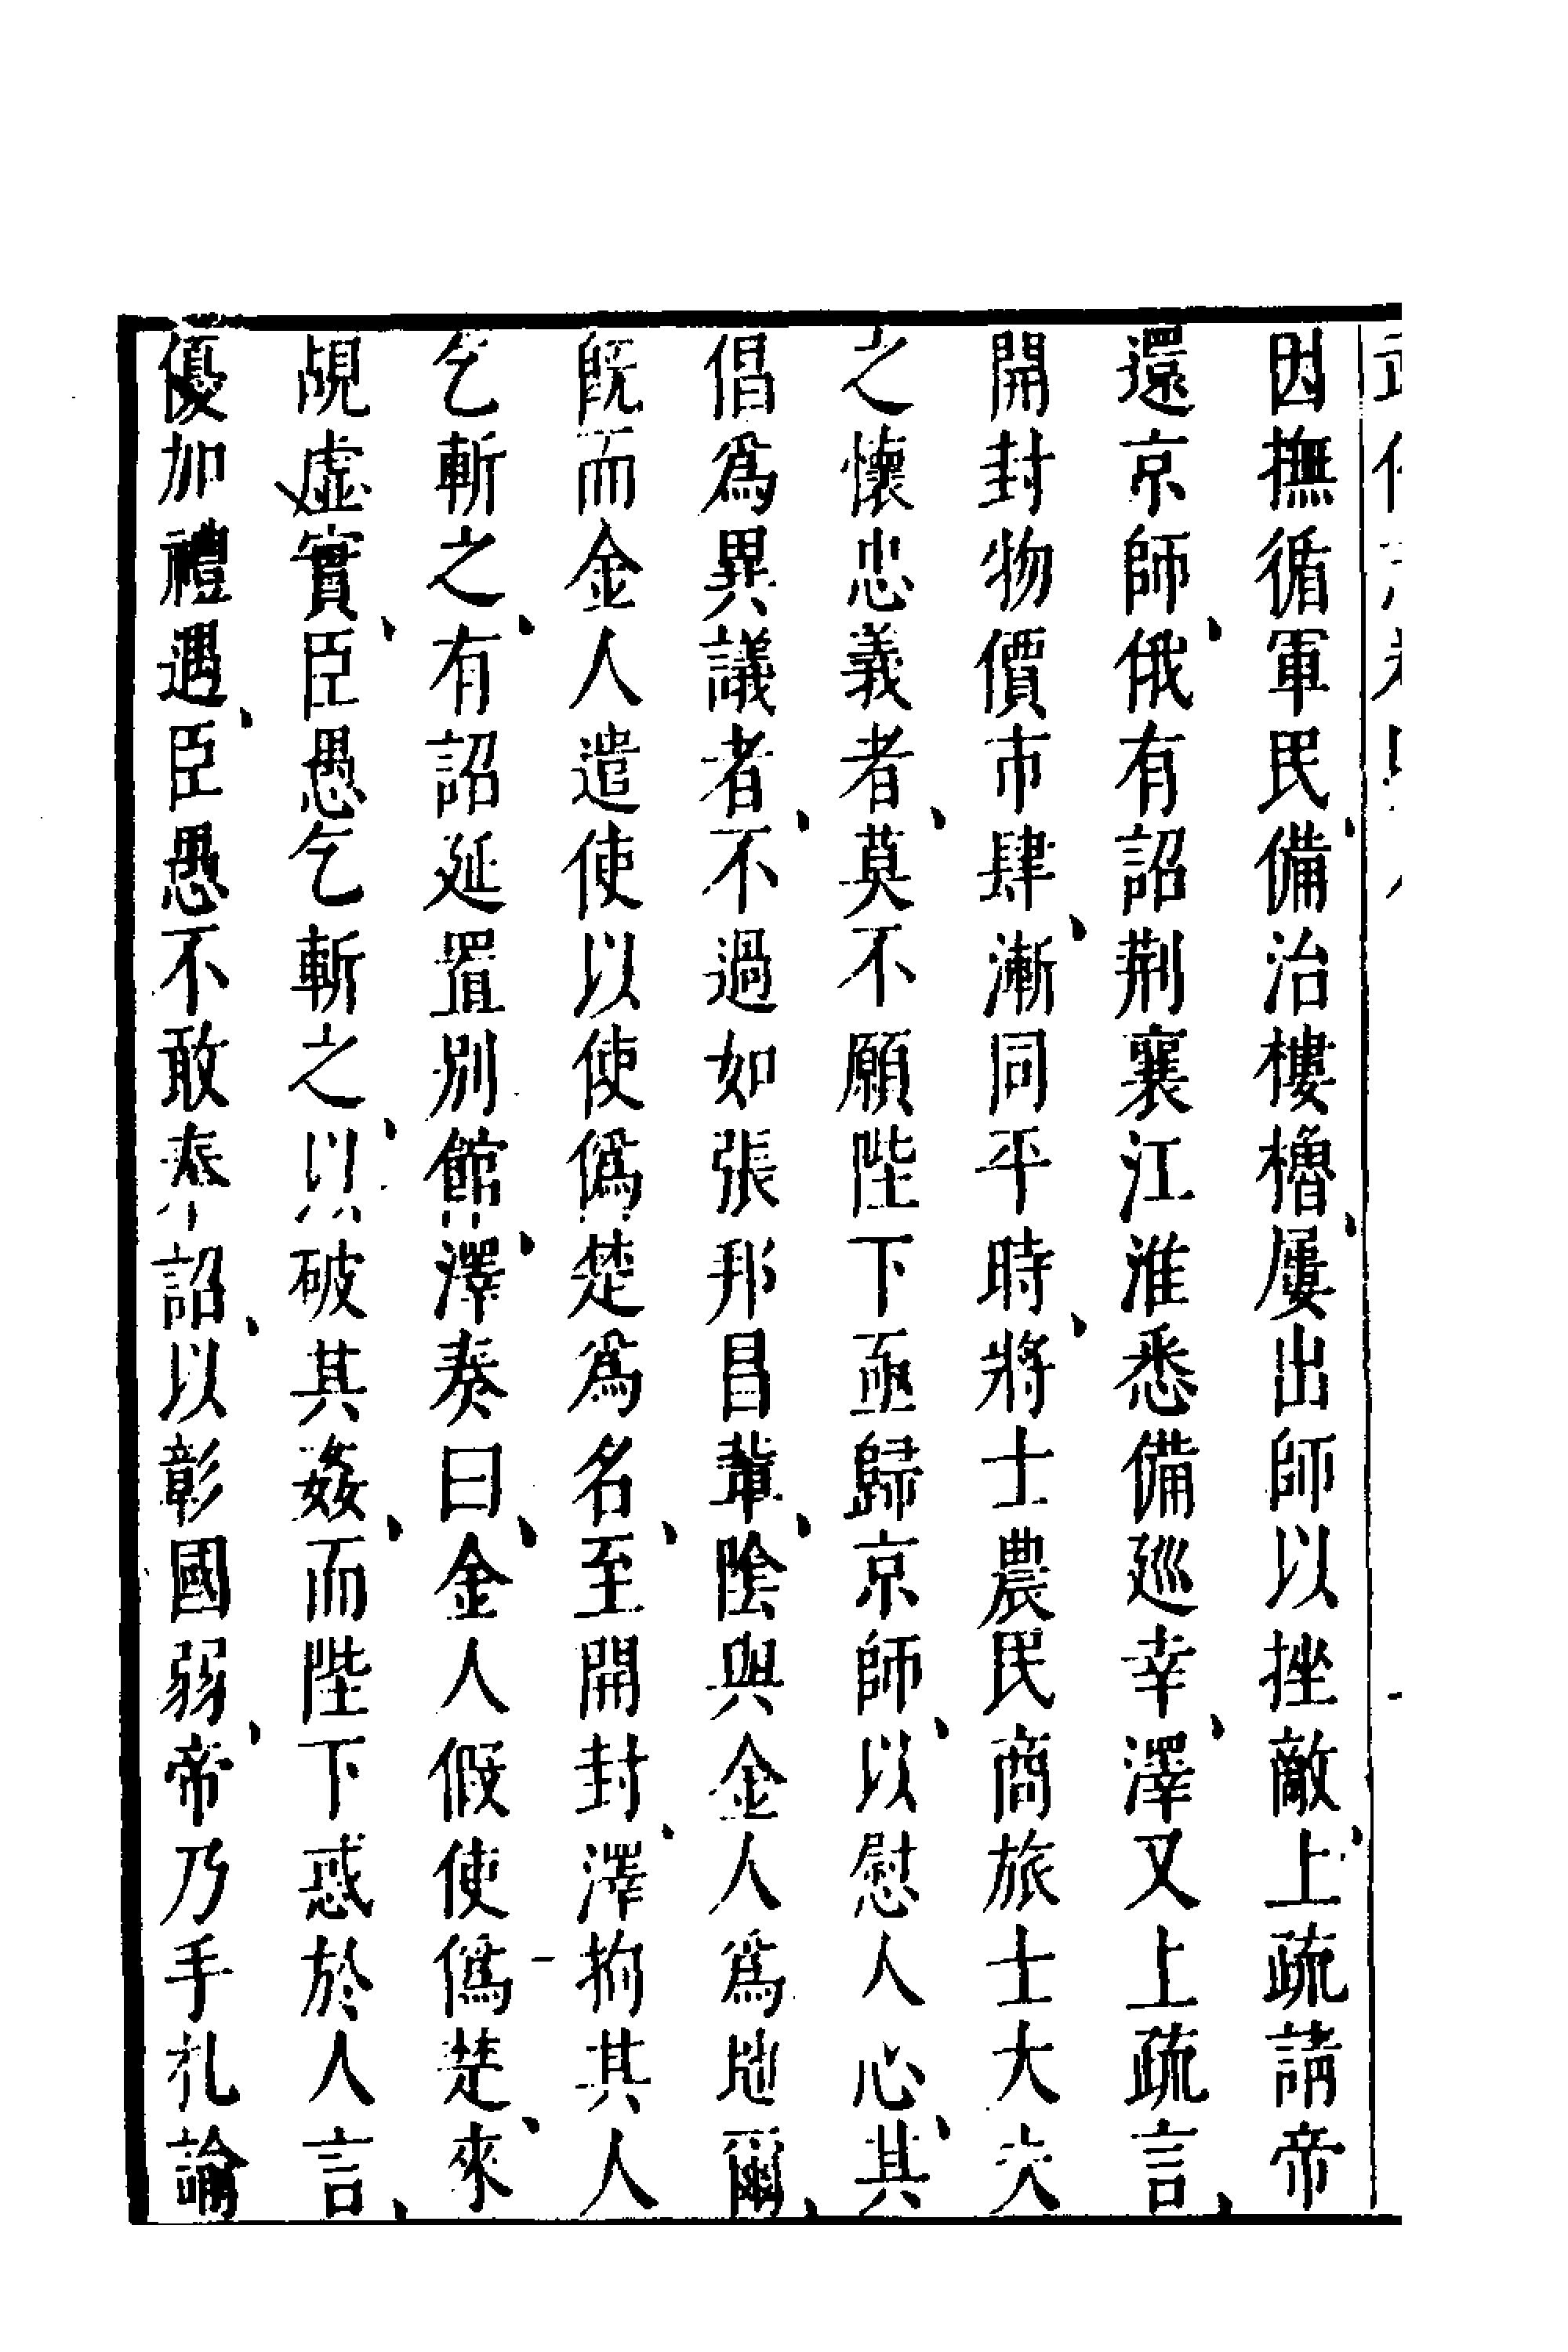 因撫循軍民、備治樓櫓、屢出師以挫敵、上疏請帝
還京師、俄有詔荆襄江淮悉備巡幸、澤又上疏言、
開封物價市肆、漸同平時、將士農民商旅士大夫
之懷忠義者、莫不願陛下亟歸京師、以慰人心、其
倡爲異議者、不過如張邦昌輩、陰與金人爲地爾、
旣而金人遣使以使僞楚爲名、至開封、澤拘其人
乞斬之、有詔延置別館、澤奏曰、金人假使僞楚、來
覘虛實、臣愚乞斬之、以破其姦、而陛下惑於人言、
優加禮遇、臣愚不敢奉詔、以彰國弱、帝乃手札諭